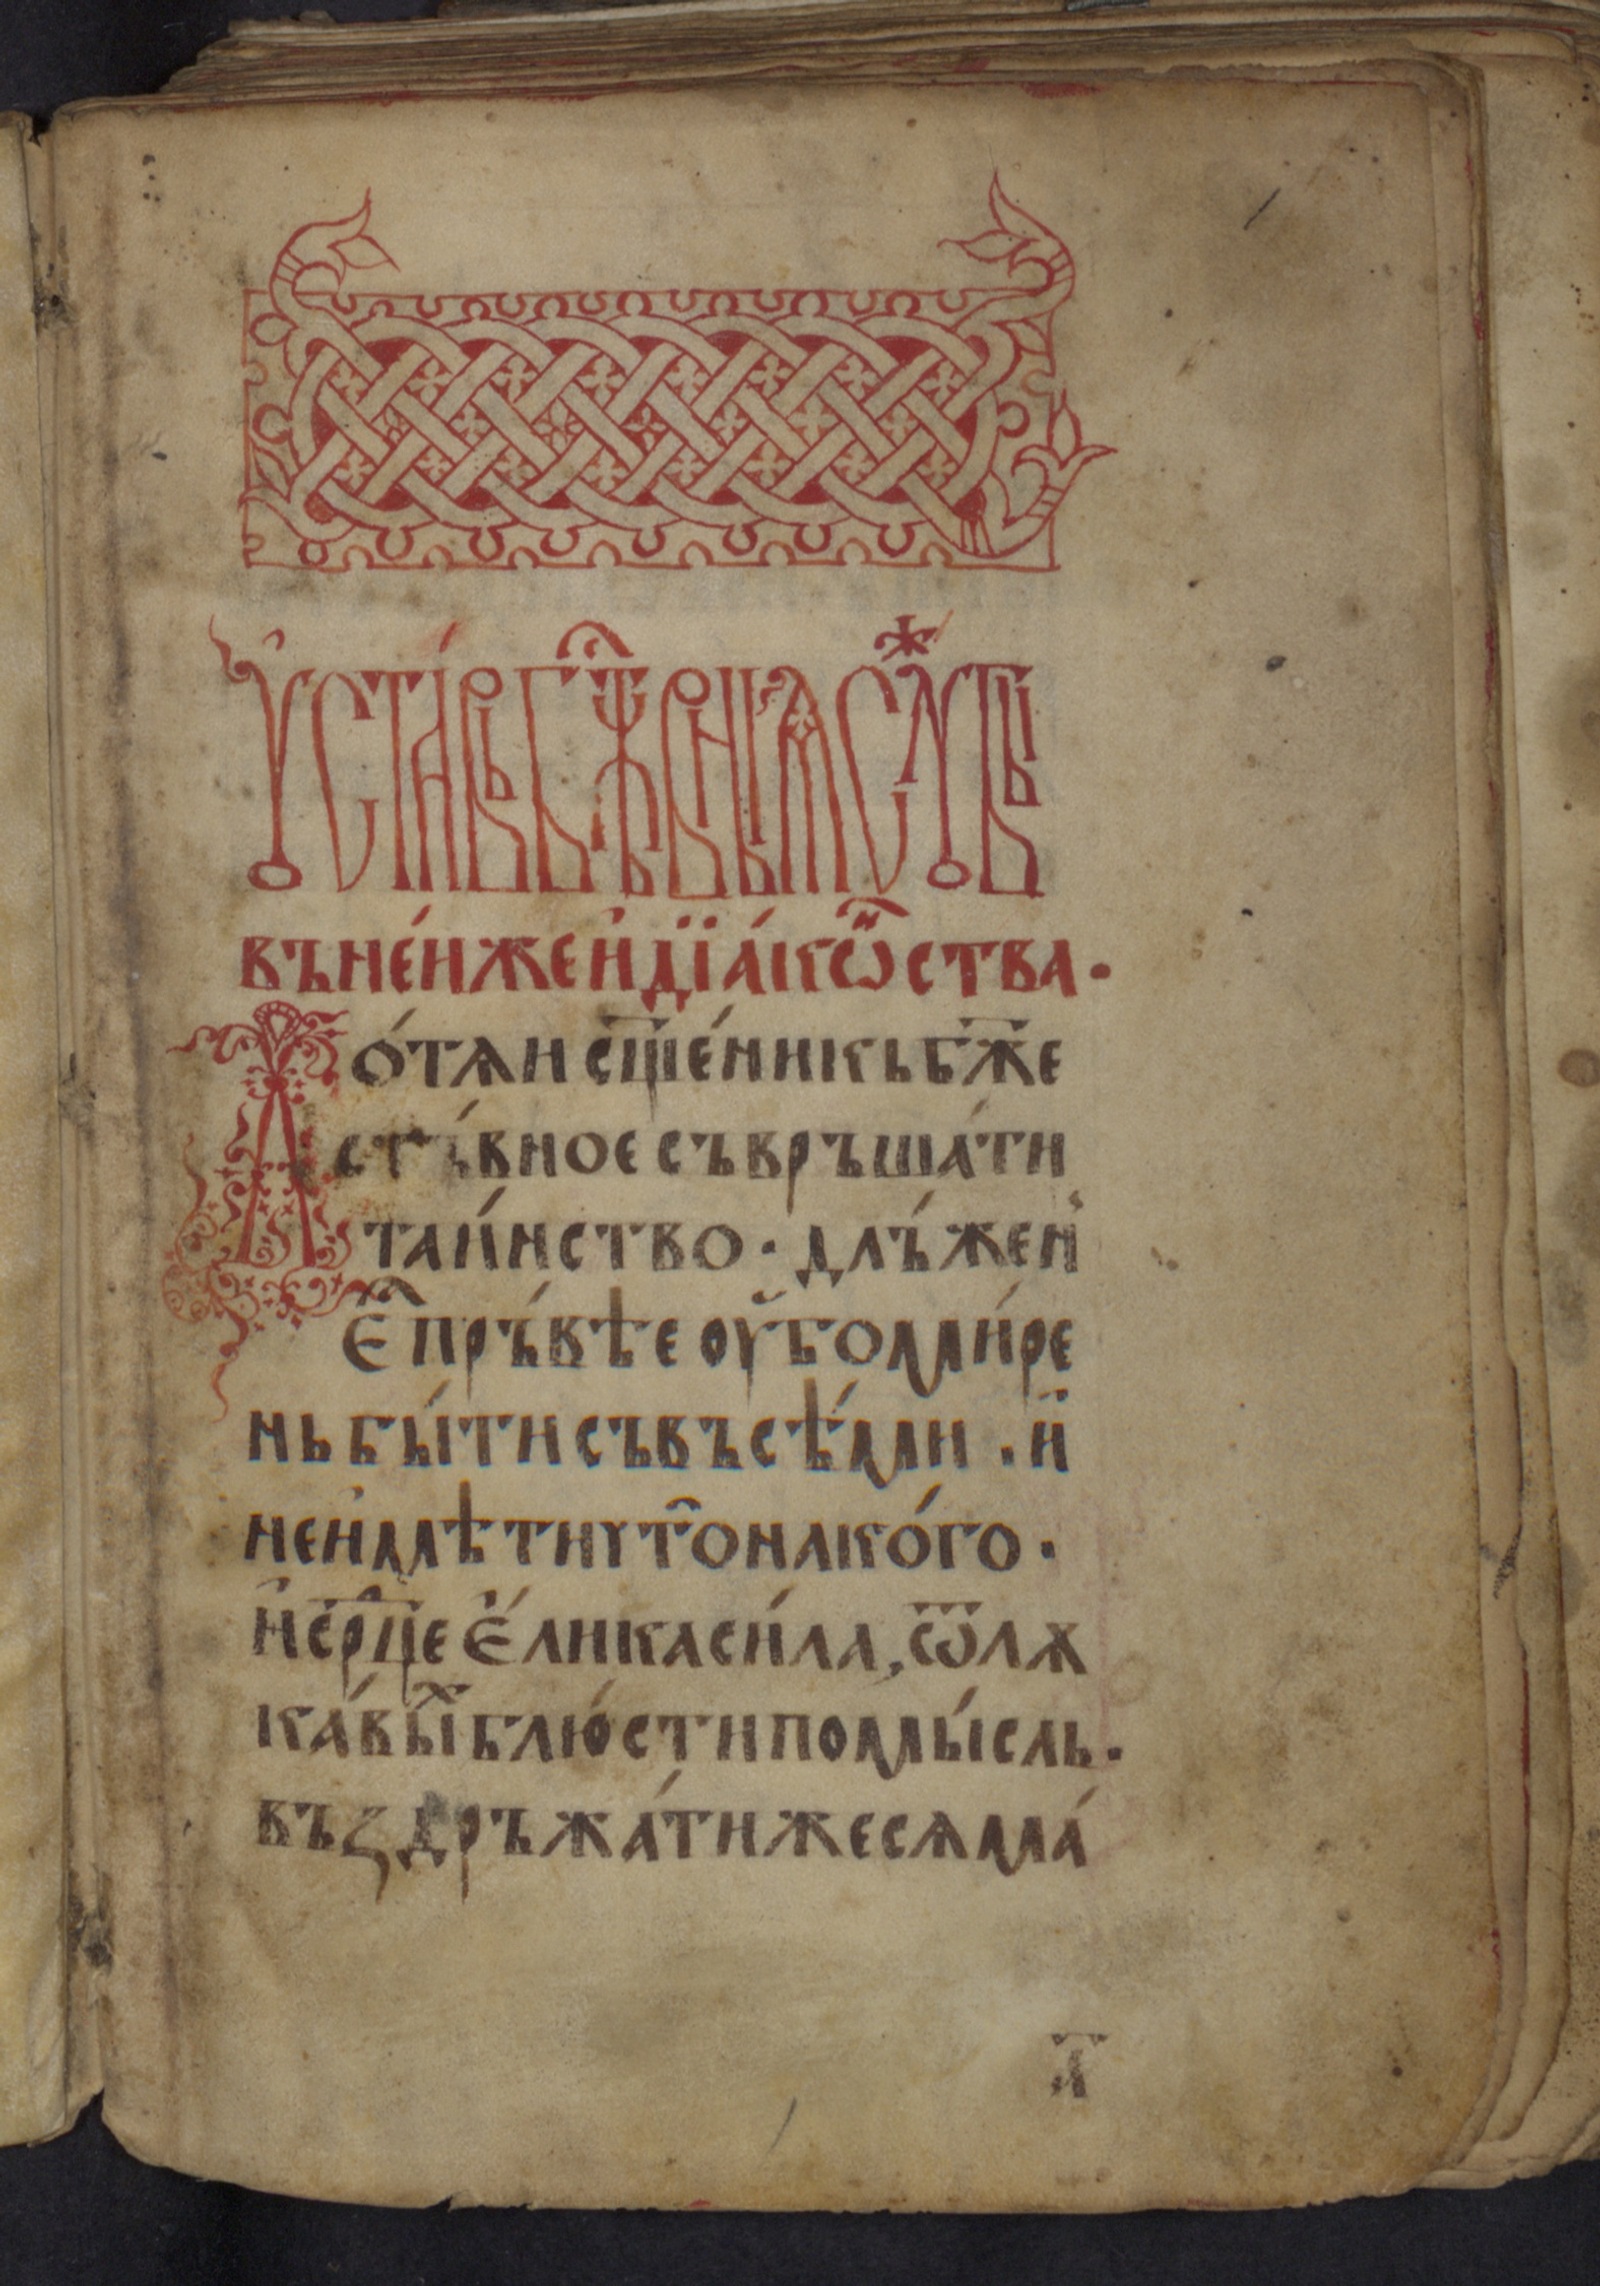 Уставь бжⷭ҇твныѧ слꙋжбы
въ нѐи́же и҆ дїа́кѡн҇ства·
Хотѧи сщ҃е́нникь бж҃е
ств́вное съвръша́ти
таи́нство· длъ́жен̾
є҆с҇ пръ́вѣе оу҆бо ми́ре
нь бы́ти съ въсѣ́ми . и҆
не и҆мѣти чт҇о на ко́го·
и҆ ср҇дце є҆ли́ка си́ла, ѿ лѫ
ка́вы҇и блю́сти помы́сль·
въздръжа́ти же сѧ ма́
а҃